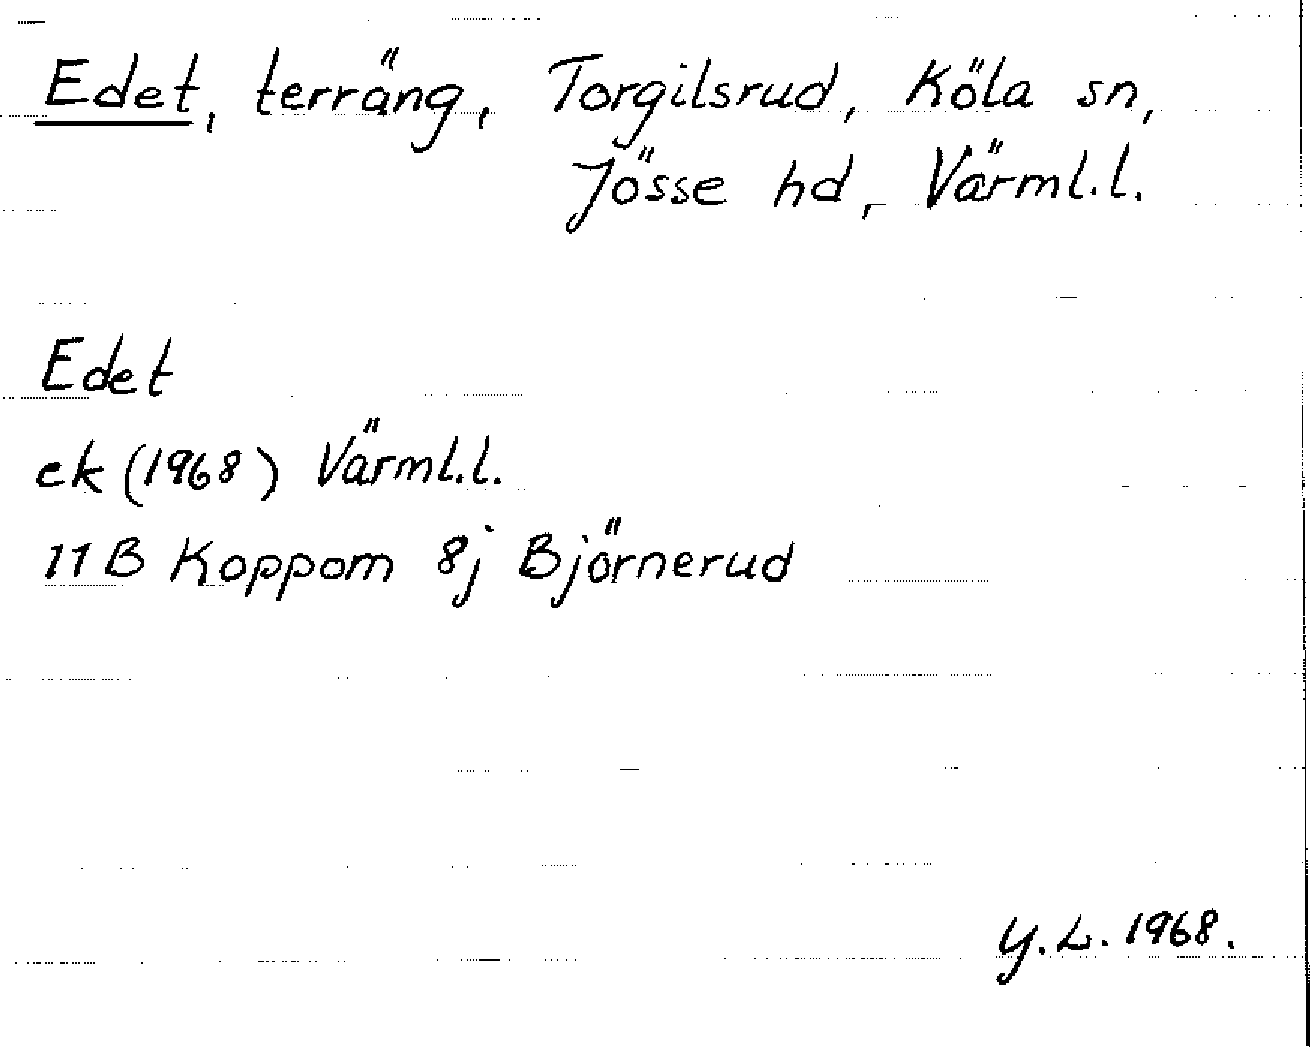 Edet, terräng, Torgilsrud, Köla sn,
Jösse hd, Värml.l.
Edet
ek (1968) Värml.l.
11B Koppom 8j Björnerud
Y.L. 1968.